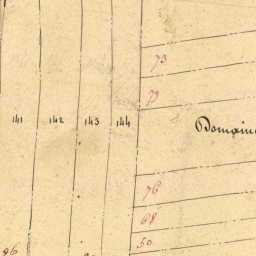 73
77
141 142 143 144
76
68
50
96